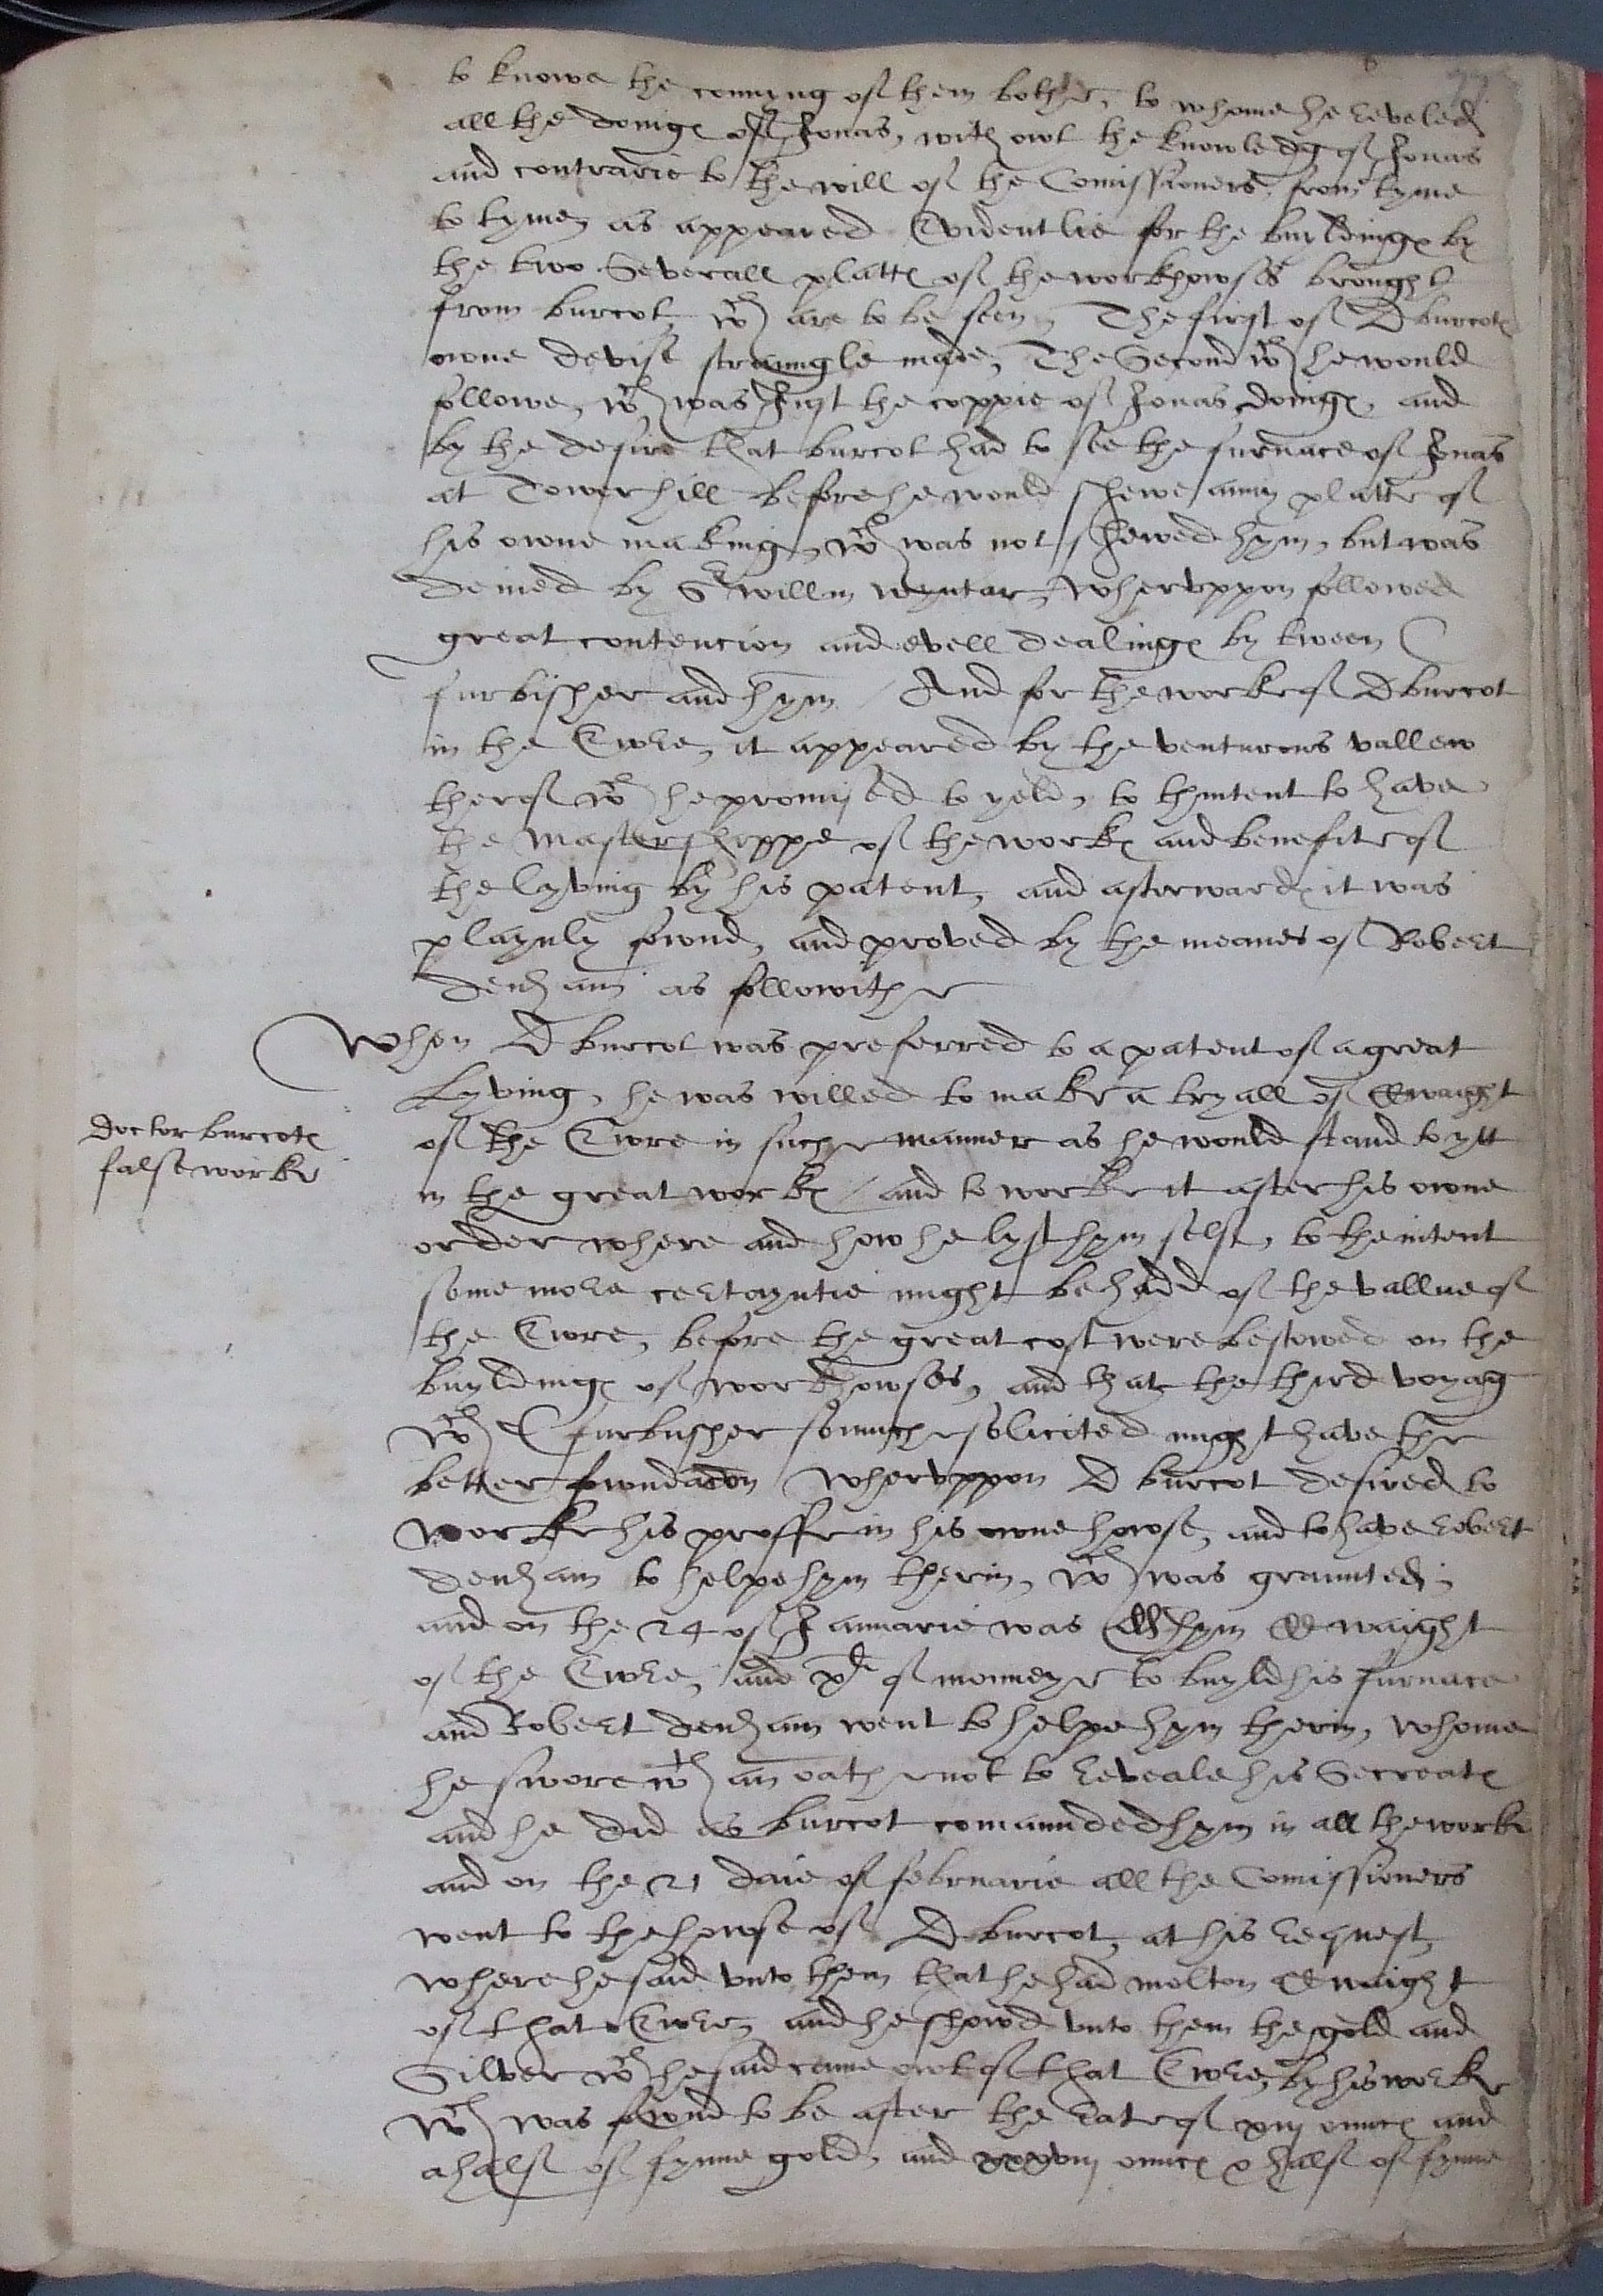 to knowe the conning of them bothe, to whome he reveled
all the doinges of Jonas, with owt the knowledg of Jonas
and contrarie to the will of the Comissioners, from tyme
to tyme, as appeared Evidentlie for the buyldinges by
the two Severall plattes of the workhowses brought
from burcot, wch are to be seen, The first of D burcotes
owne devise straungle made, The Second wch he would
followe, wch was Just the coppie of Jonas doinges, and
by the desire that burcot had to see the furnace of Jonas
at Towerhill before he would shewe anny platte of
his owne making, wch was not shewed hym, but was
deined by Sr willm wyntar, whervppon followed
great contencion and evell dealinges by tween C
furbisher and hym / And for the worke of D burcot
in the Ewre, it appeared by the venturous vallew
therof wch he promised to yeld, to thintent to have
the Mastershippe of the workes and benefite of
the lyving by his patent, and afterwardes it was
playnly fownd, and proved by the meanes of Robert
denham as followithe
When D burcot was preferred to a patent of a great
Lyving, he was willed to make a tryall of CC waight
of the Ewre in suche manner as he would stand to ytt
in the great workes / and to worke it after his owne
order where and how he lyst hym self, to the intent
some more certayntie might be hadd of the vallue of
the Ewre, before the great cost were bestowed on the
buyldinges of workhowses, and that the third voyag
wch C furbusher so muche solicited might have the
better fowndacon whervppon D burcot desired to
worke his proffe in his owne howse, and to have robert
denham to helpe hym therin, wch was graunted,
and on the 24 of Januarie was hym CC waight
of the Ewre, and xli of monneye to buyld his furnace
and Robert denham went to helpe hym therin, whome
he swore wth an oathe not to reveale his Secreates
and he did as burcot comaunded hym in all the workes
and on the 21 daie of februarie all the Comissioners
went to the howse of D burcot, at his request,
where he said vnto them that he had molton CC waight
of that Ewre, and he showd vnto them the gold and
Silver wch he said came owt of that Ewre, by his worke
wch was fownd to be after the rate of xiij ounces and
a half of fynne gold, and ounces & half of fynne
doctor burcotes
false worke